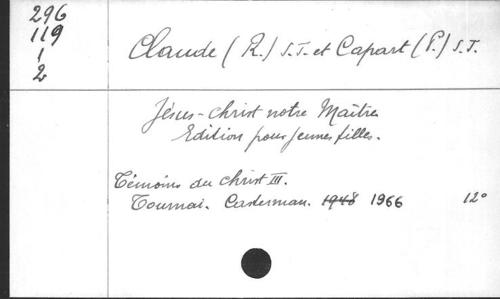 296
119
1
2
Claude (R.) S.J. et Capart (P.) S.J.
Jésus-Christ notre Maître
Edition pour jeunes filles.
Témoins du Christ III.
Tournai. Casterman. 1948 1966 12°